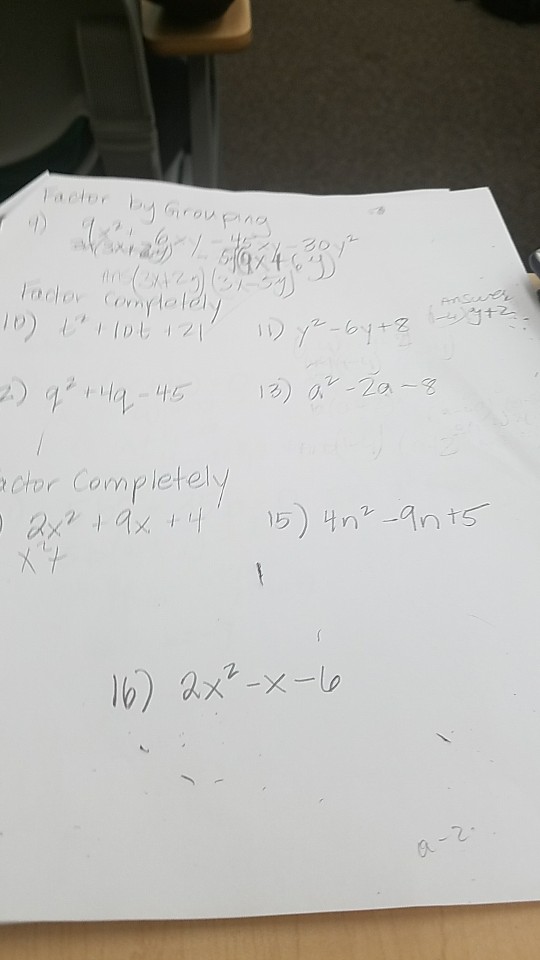 Factor by Grouping
9) 9x² + 6xy - 45xy - 30y²
3x(3x+2y) - 5(9x+6y)
Ans (3x+2y)(3x-5y)
Factor Completely
10) t² + 10t + 21 11) y² - 6y + 8 Answer
y+2
2) q² + 4q - 45 13) a² - 2a - 8
actor Completely
) 2x² + 9x + 4 15) 4n² - 9n + 5
x² +
16) 2x² - x - 6
a - 2